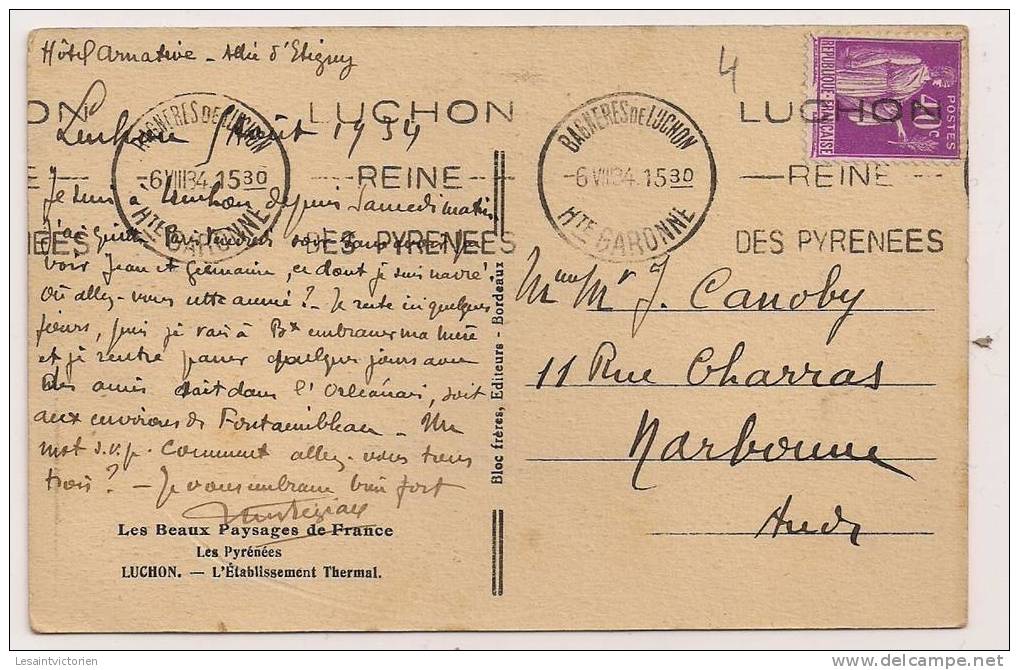 Hôtel Arnative - Allée d'Etigny
4
Luchon Août 1934
LUCHON
REINE
DES PYRENEES
BAGNERES DE LUCHON
-6 VIII 34. 15 30
HTE GARONNE
BAGNERES DE LUCHON
-6 VIII 34. 15 30
HTE GARONNE
LUCHON
REINE
DES PYRENEES
REPUBLIQUE FRANÇAISE
POSTES
40c
Je suis à Luchon depuis Samedi matin
Paris Vendredi soir sans avoir pu
voir Jean et Germaine, ce dont je suis navré.
Où allez-vous cette année? - Je reste ici quelques
jours, puis je vais à Bx embrasser ma mère
et je rentre passer quelques jours avec
des amis soit dans l'Orléanais, soit
aux environs de Fontainebleau - Un
mot s.v.p. Comment allez-vous tous
trois? - Je vous embrasse bien fort
Les Beaux Paysages de France
Les Pyrénées
LUCHON. — L'Établissement Thermal.
Bloc frères, Editeurs - Bordeaux
Mme Mr J. Canoby
11 Rue Charras
Narbonne
Aude
Lesaintvictorien
delcampe.net